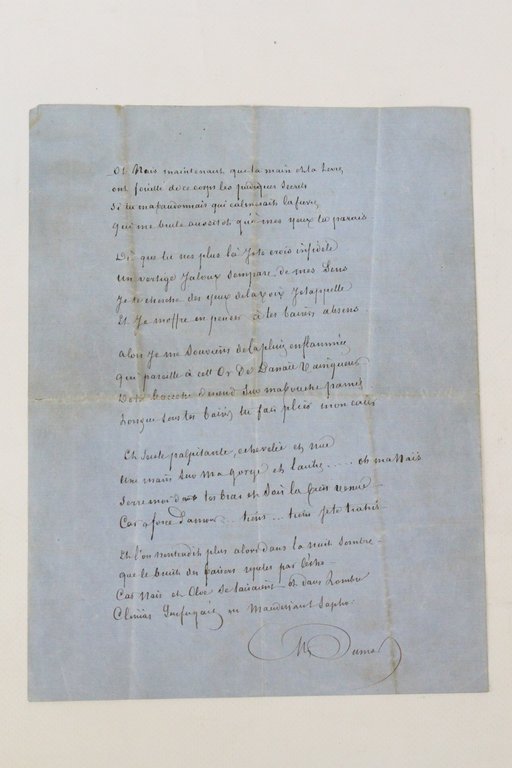 Oh Naïs maintenant que ta main et ta levre
ont fouillé de ce corps les pudiques secrets
Si tu mabandonnais qui calmerait la fievre
Qui me brule aussitot qu'à mes yeux tu parais
Dès que tu nes plus là Je te crois infidele
Un vertige Jaloux sempare de mes Sens
Je te cherche des yeux de la voix Je tappelle
Et Je moffre en pensée à tes baisers absens
alors Je me Souviens de la pluie enflammée
qui pareille à cet Or de Danaë
dessus ma bouche pamée
Lorsque sous tes baisers tu fais plier mon corps
Et Seule palpitante, echevelée et nue
Une main Sur Ma gorge et l'autre ..... oh ma Naïs
Serre moi dans tes bras et Sois la bien venue
Car a force damour .. tiens ... tiens je te trahis
Et l'on nentendit plus alors dans la nuit Sombre
que le bruit des baisers repetés par lécho
Car Naïs et Cloé Se taisaient - et dans Lombre
Clinias Senfuyait en Maudissant Sapho.
Dumas